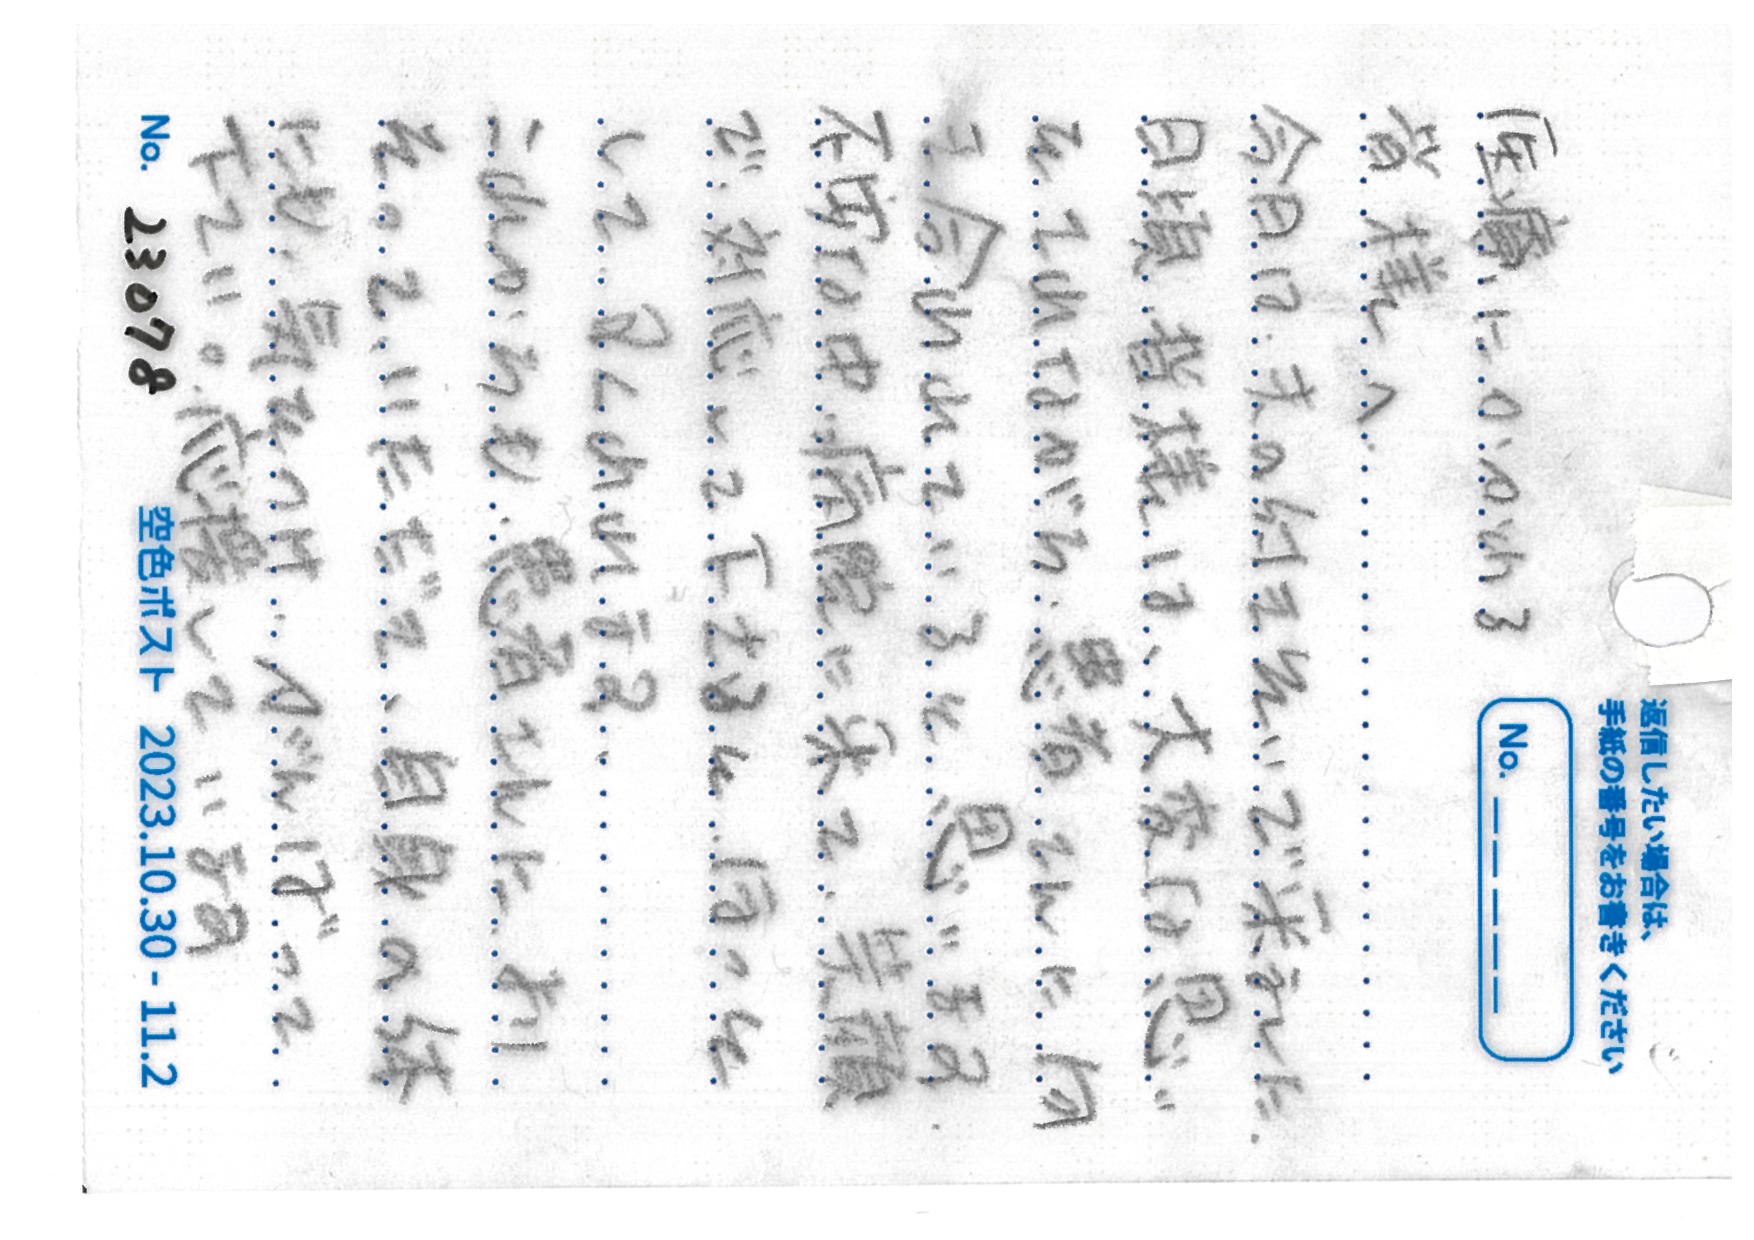 返信したい場合は、
手紙の番号をお書きください
No. _ _ _ _ _
医療にかかわる
皆様へ
今日は夫の付きそいで来ました.
日頃皆様は、大変な思い
をされながら患者さんに向
き合われていると思います.
不安な中病院に来て、笑顔
で対応して下さると ほっと
して
これからも患者さんに より
そっていただだて、自身の体
にも気をつけ がんばって
下さい。応援しています
No. 23078
空色ポスト 2023.10.30 - 11.2